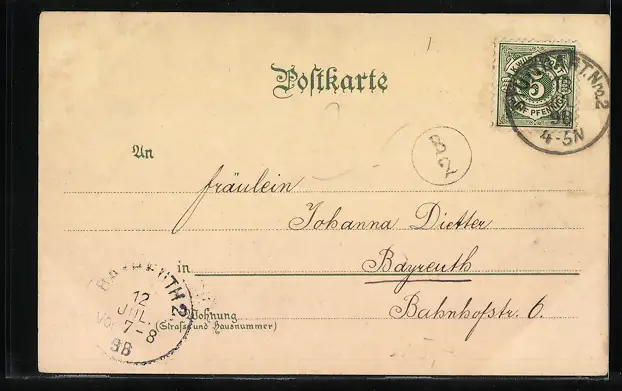 Postkarte
K. WÜRTT.
5
FÜNF PFENNIG
STUTTGART. No. 2
11
98
4-5N
B
2
An
fräulein
Johanna Dietter
in
Bayreuth
Bahnhofstr. 6.
Wohnung
(Strasse und Hausnummer)
BAYREUTH 2
12
JUL.
7-8
98